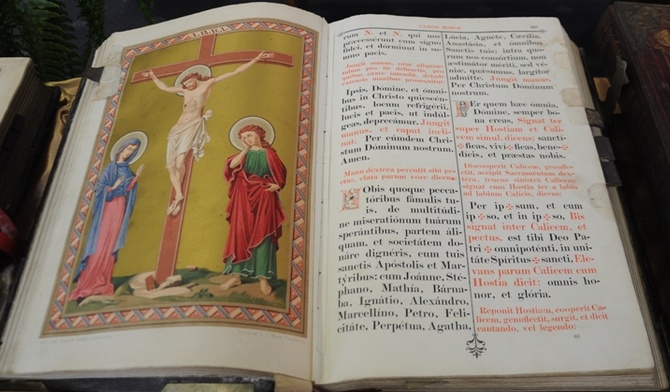 I.N.R.I.
CANON MISSÆ.
rum N. et N. qui nos
præcessérunt cum signo
fídei, et dórmiunt in somno
pacis.
Ipsis, Dómine, et ómni-
bus in Christo quiescén-
tibus, locum refrigérii,
lucis et pacis, ut indúl-
geas, deprecámur. Jungit
manus, et caput incli-
nat. Per eúmdem Chri-
stum Dóminum nostrum.
Amen.
Manu dextera percutit sibi pe-
ctus, elata parum voce dicens:
Nobis quoque pecca-
tóribus fámulis tu-
is, de multitúdi-
ne miseratiónum tuárum
sperántibus, partem áli-
quam, et societátem do-
náre dignéris, cum tuis
sanctis Apóstolis et Mar-
týribus: cum Joánne, Sté-
phano, Mathía, Bárna-
ba, Ignátio, Alexándro,
Marcellíno, Petro, Feli-
citáte, Perpétua, Agatha,
Lúcia, Agnéte, Cæcília,
Anastásia, et ómnibus
Sanctis tuis: intra quo-
rum nos consórtium, non
æstimátor mériti, sed vé-
niæ, quǽsumus, largítor
admítte. Jungit manus.
Per Christum Dóminum
nostrum.
Per quem hæc ómnia,
Dómine, semper bo-
na creas, Signat ter
super Hostiam et Cali-
cem simul, dicens: sancti-
✠ficas, viví✠ficas, bene✠
dícis, et præstas nobis.
Discooperit Calicem, genufle-
ctit, accipit Sacramentum dex-
tera, tenens sinistra Calicem:
signat cum Hostia ter a labio
ad labium Calicis, dicens:
Per ip✠sum, et cum
ip✠so, et in ip✠so, Bis
signat inter Calicem, et
pectus, est tibi Deo Pa-
tri ✠ omnipoténti, in uni-
táte Spíritus ✠ sancti, Ele-
vans parum Calicem cum
Hostia dicit: omnis ho-
nor, et glória.
Reponit Hostiam, cooperit Ca-
licem, genuflectit, surgit, et dicit
cantando, vel legendo: